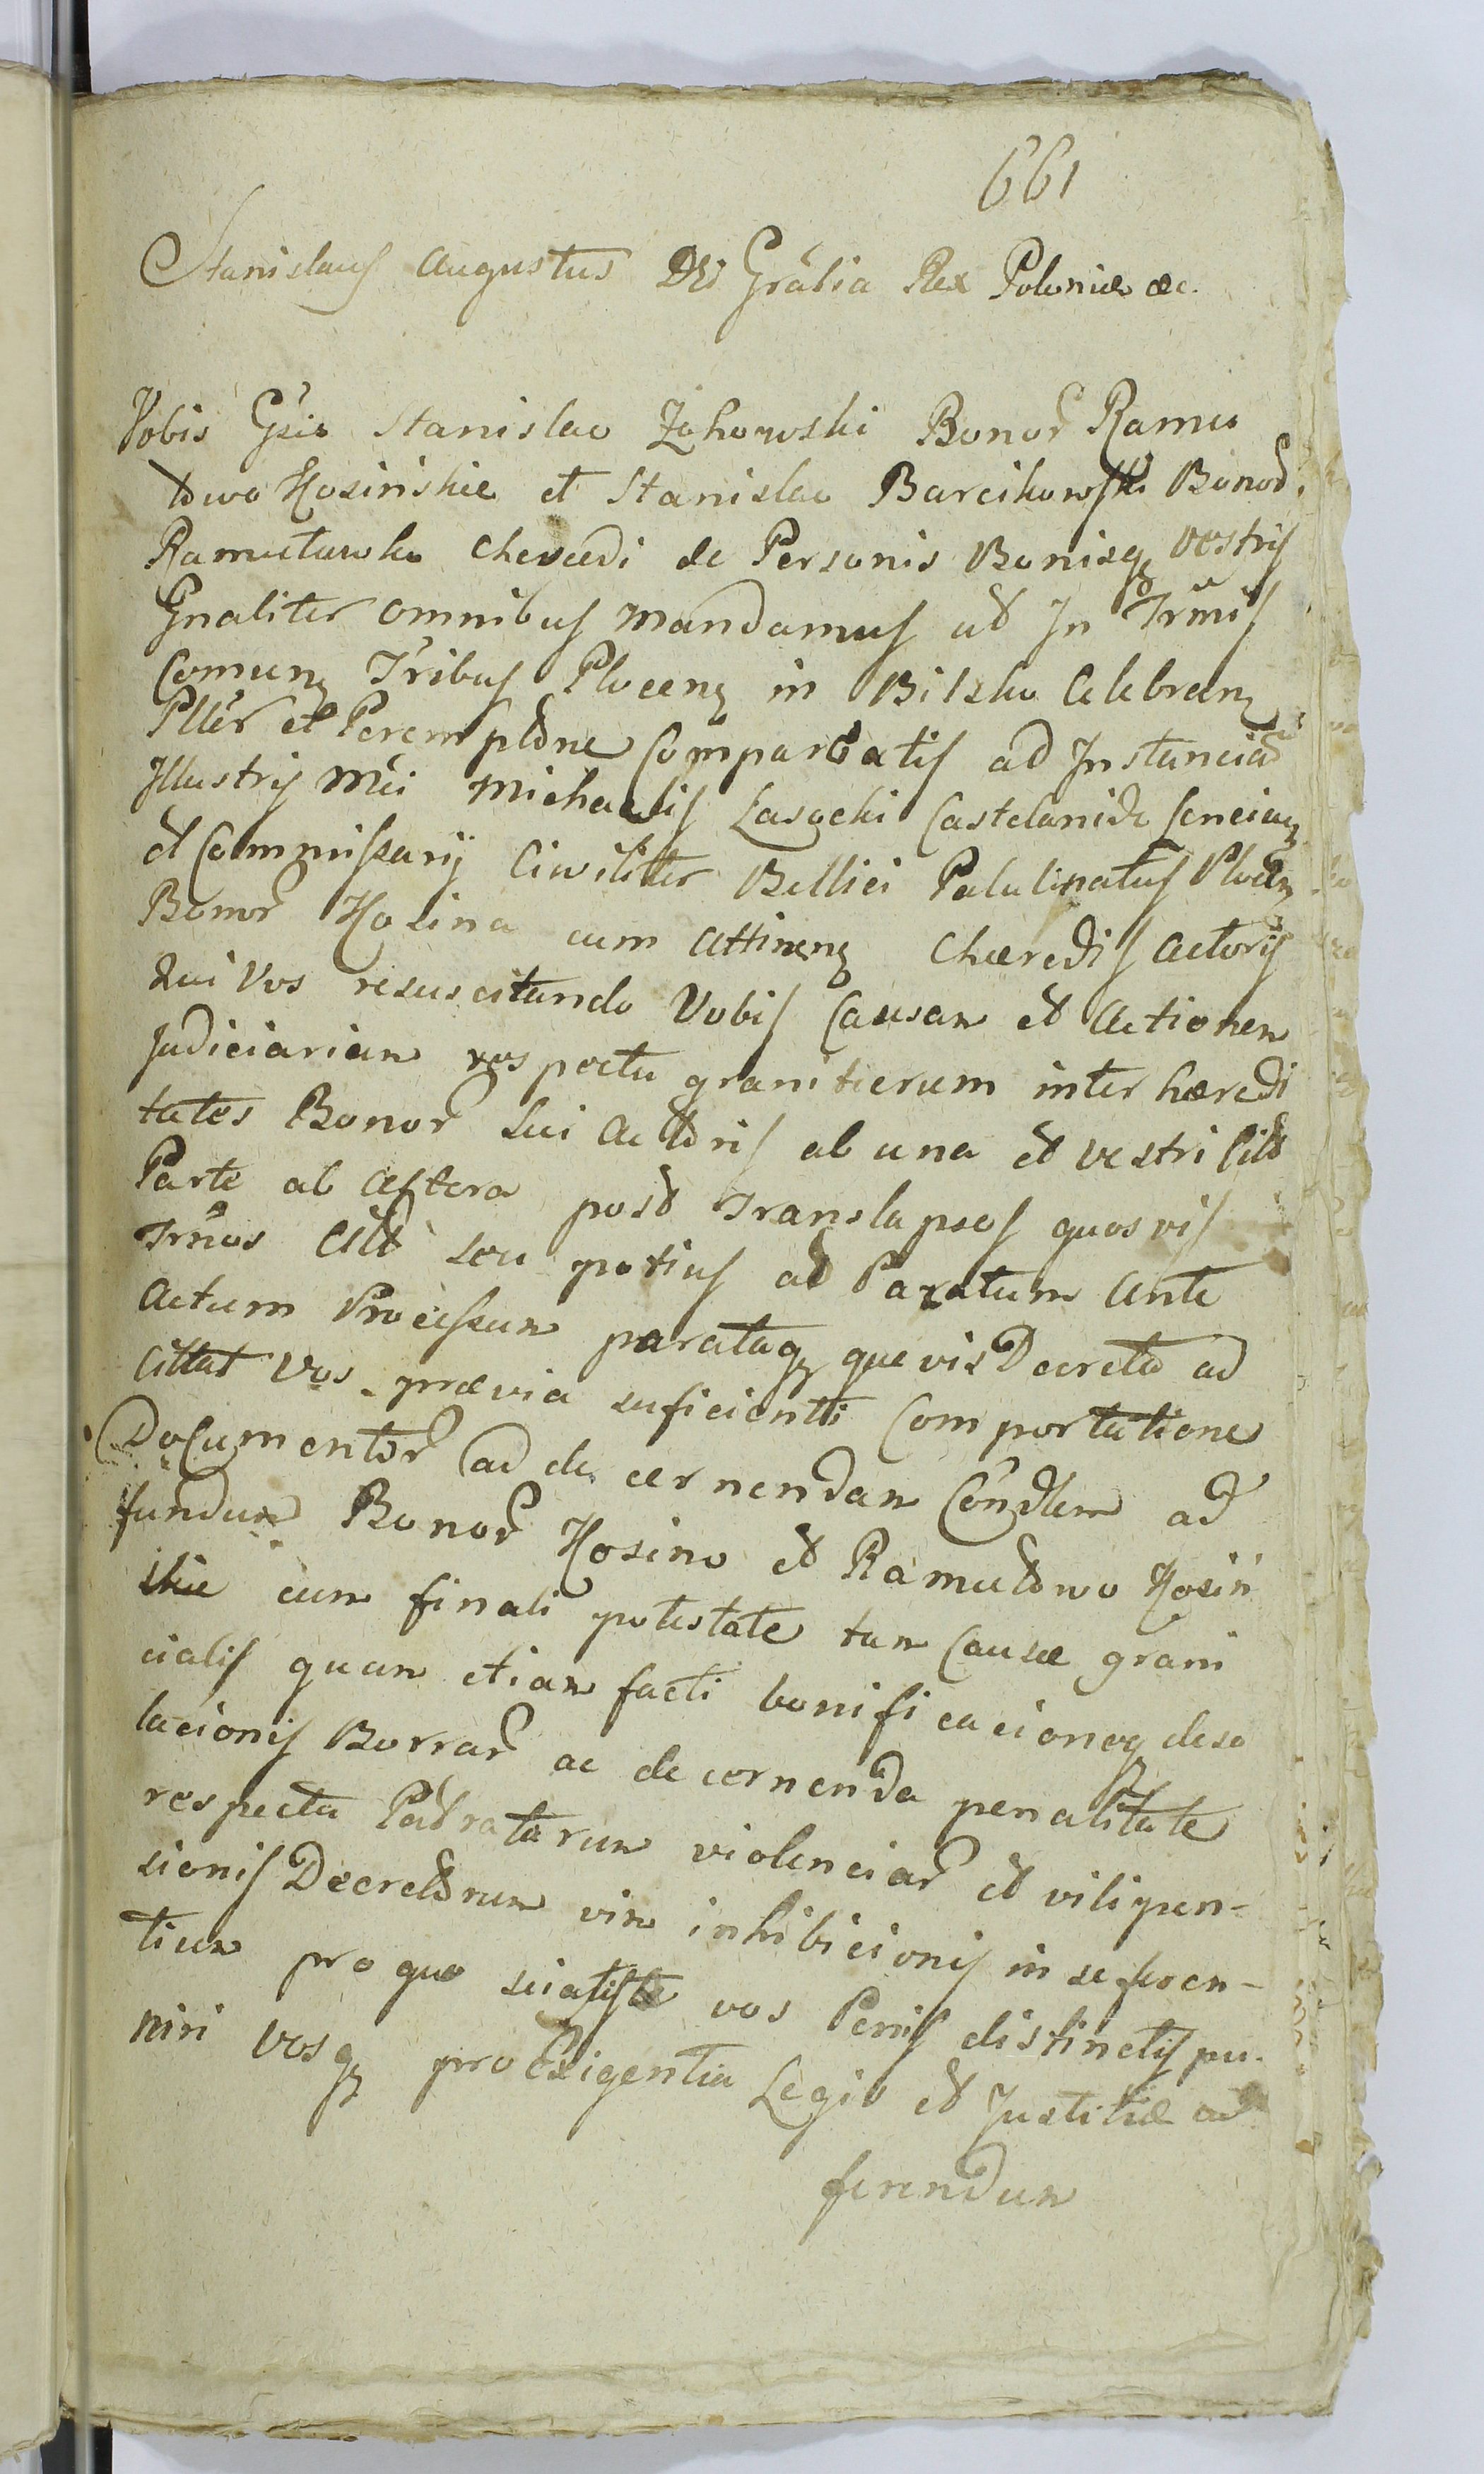 661
Stanislaus Augustus Dei Grãtia Rex Poloniæ &c.
Vobis Gsis Stanislao Zohowski Bonor Ramu
towo Kosinskie et Stanislao Barcikowski Bonor
Ramutowko Chæredi de Personis Bonisq vestris
Gnaliter omnibus mandamus ut In Trmis
Comun Tribus Plocen in Bilsko Celebran
Pltter et Peremptone Compareatis ad Instanciam
Illustris Mci Michaelis Lasocki Castelanidæ Sonciacen
et Commissarij Civiliter Bellici Palatinatus Plocen
Bonor Kosina cum Attinen Chæredis Actoris
Qui Vos resuscitando Vobis Causam et Actionem
Judiciariam respectu granitierum inter hæredi
tates Bonor Sui Actoris ab una et vestri Citt
Parte ab Altera post Translapsos quosvis
Trnos Citt seu potius ad Paratum Ante
Actum Processum parataq quævis Decreta ad
Cittat Vos prævia suficienti Comportatione
Documentor ad decernendam Condtem ad
fundum Bonor Kosino et Ramutowo Kosin
skie cum finali potestate tam Causæ grani
cialis quam etiam facti bonificacioneq deso
lacionis Borrar ac decernenda penalitate
respectu Patratarum violenciar et vilipen-
sionis Decretorum vim inhibicionis in se feren-
tium pro quo sciatis vos Penis distinctis pu-
niri Vosq pro Exigentia Legis et Justitiæ ad
ferendum